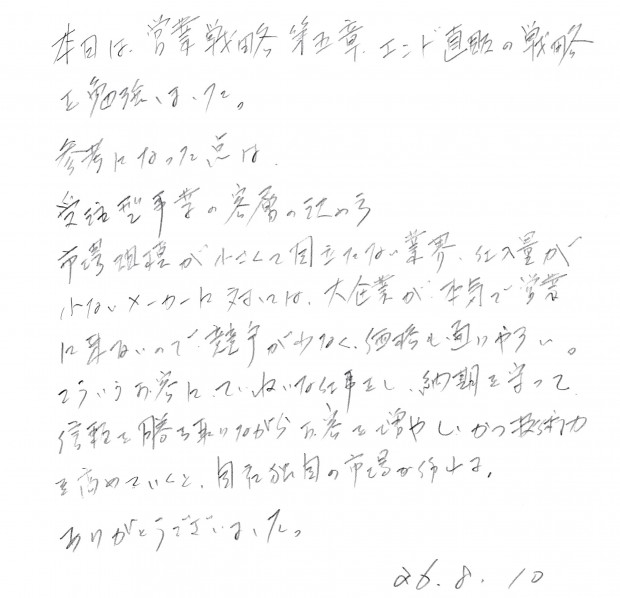 本日は、営業戦略 第五章、エンド直販の戦略
を勉強いました。
参考になった点は、
受注型事業の客層の決め方
市場規模が小さくて目立たない業界、仕入量が
少ないメーカーに対しては、大企業が本気で営業
に来ないので競争が少なく、価格も通りやすい。
こういうお客に、ていねいな仕事をし、納期を守って
信頼を勝ち取りながらお客を増やし、かつ技術力
を高めていくと、自社独自の市場が作れる。
ありがとうございました。
26.8.10